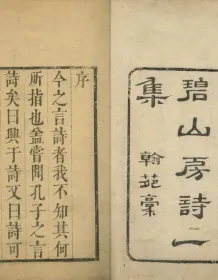 碧山房詩一
集
翰苑稾
序
今之言詩者我不知其何
所指也盆嘗聞孔子之言
詩矣曰興于詩又曰詩可